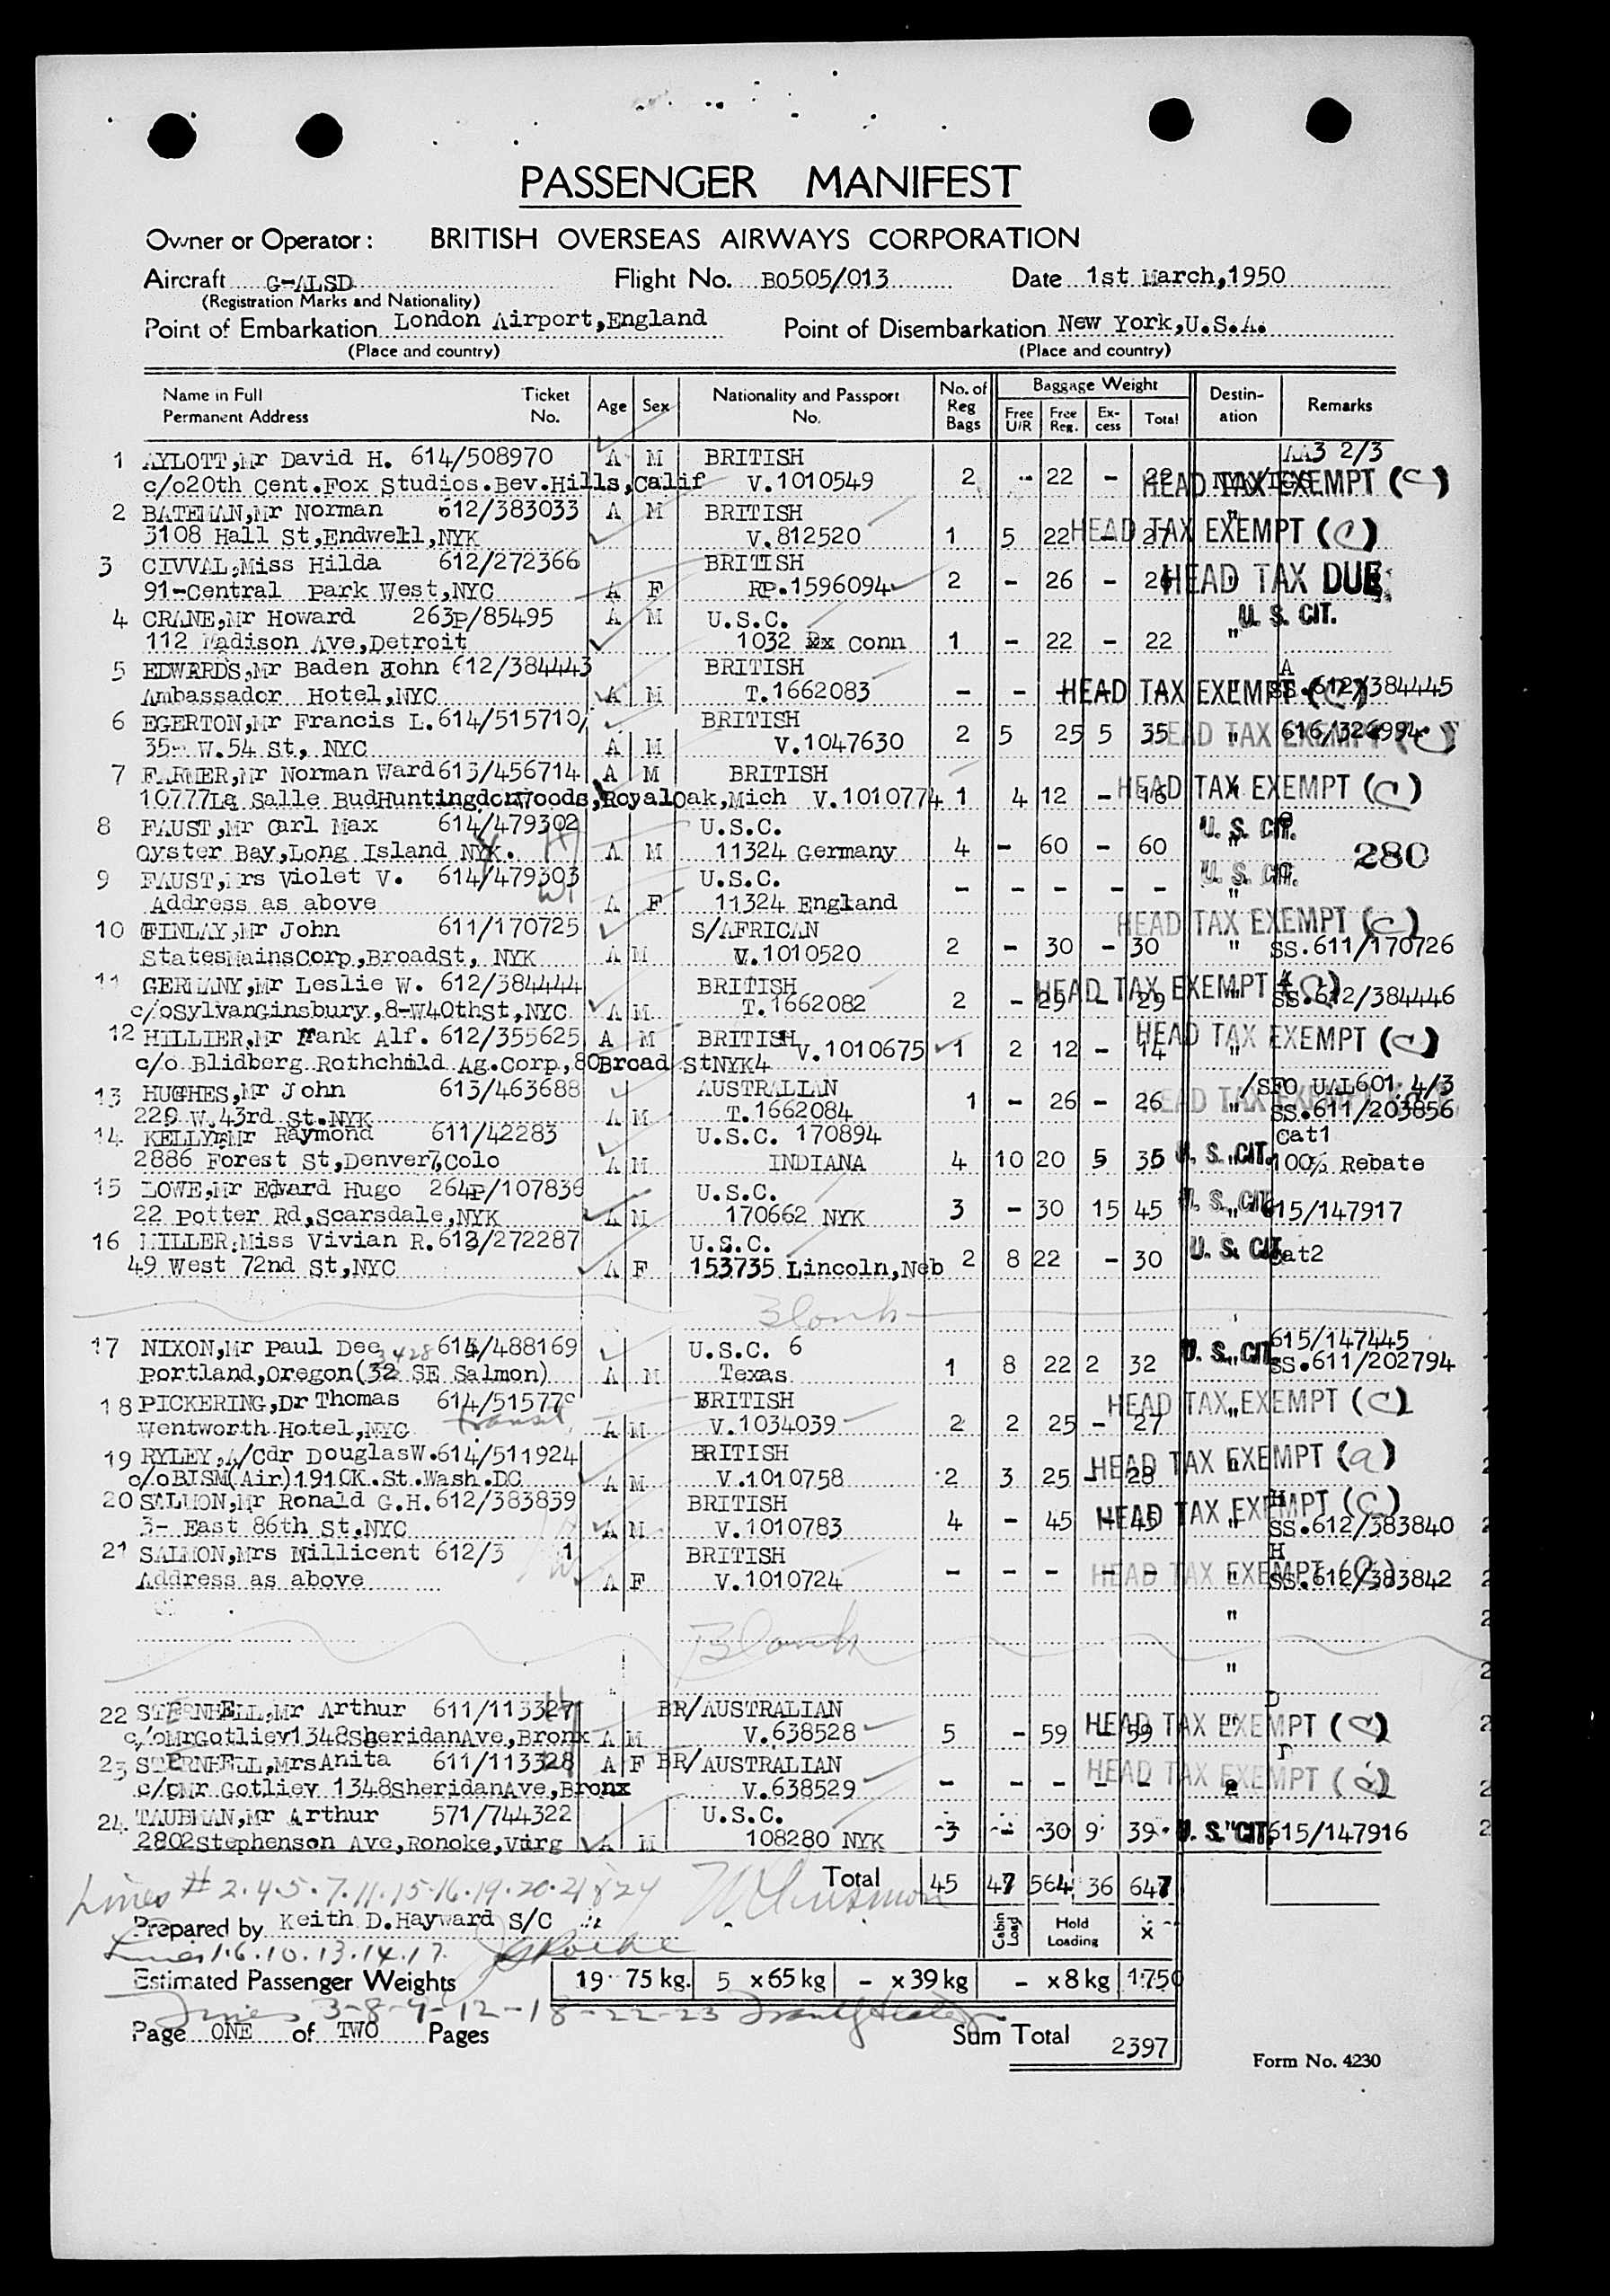 PASSENGER MANIFEST
Owner or Operator: BRITISH OVERSEAS AIRWAYS CORPORATION
Aircraft G-ALSD Flight No. BO505/013 Date 1st March,1950
(Registration Marks and Nationality)
Point of Embarkation London Airport,England Point of Disembarkation New York,U.S.A.
(Place and country) (Place and country)
Name in Full Permanent Address Ticket No. Age Sex Nationality and Passport No. No. of Reg Bags Baggage Weight Free U/R Free Reg. Ex-cess Total Destin-ation Remarks
1 AYLOTT,Mr David H. 614/508970 A M BRITISH AA3 2/3
c/o20th Cent.Fox Studios.Bev.Hills,Calif V.1010549 2 - 22 - 22 HEAD TAX EXEMPT (C)
2 BATEMAN,Mr Norman 612/383033 A M BRITISH "
3108 Hall St,Endwell,NYK V.812520 1 5 22 - 27 HEAD TAX EXEMPT (C)
3 CIVVAL,Miss Hilda 612/272366 BRITISH
91-Central park West,NYC A F RP.1596094 2 - 26 - 26 " HEAD TAX DUE
4 CRANE,Mr Howard 263P/85495 A M U.S.C. U. S. CIT.
112 Madison Ave,Detroit 1032 Conn 1 - 22 - 22 "
5 EDWARDS,Mr Baden John 612/384443 BRITISH A
Ambassador Hotel,NYC A M T.1662083 - - - - - HEAD TAX EXEMPT (C) " SS.612/384445
6 EGERTON,Mr Francis L. 614/515710 BRITISH
35- W.54 St, NYC A M V.1047630 2 5 25 5 35 " HEAD TAX EXEMPT (C) 616/326994
7 FARMER,Mr Norman Ward 613/456714 A M BRITISH
10777La Salle BudHuntingdonWoods,RoyalOak,Mich V.1010774 1 4 12 - 16 " HEAD TAX EXEMPT (C)
8 FAUST,Mr Carl Max 614/479302 U.S.C. U. S. CIT.
Oyster Bay,Long Island NYK. A M 11324 Germany 4 - 60 - 60 " 280
9 FAUST,Mrs Violet V. 614/479303 U.S.C. U. S. CIT.
Address as above A F 11324 England - - - - - "
10 FINLAY,Mr John 611/170725 S/AFRICAN HEAD TAX EXEMPT (C)
StatesMainsCorp,BroadSt, NYK A M V.1010520 2 - 30 - 30 " SS.611/170726
11 GERMANY,Mr Leslie W. 612/384444 BRITISH HEAD TAX EXEMPT (C)
c/oSylvanGinsbury,8-W40thSt,NYC A M T.1662082 2 - 29 - 29 " SS.612/384446
12 HILLIER,Mr Frank Alf. 612/355625 A M BRITISH HEAD TAX EXEMPT (C)
c/o Blidberg Rothchild Ag.Corp,80Broad StNYK4 V.1010675 1 2 12 - 14 "
13 HUGHES,Mr John 613/463688 AUSTRALIAN /SFO UAL601 4/3
229 W.43rd St.NYK A M T.1662084 1 - 26 - 26 " HEAD TAX EXEMPT SS.611/203856
14 KELLY,Mr Raymond 611/42283 U.S.C. 170894 Cat1
2886 Forest St,Denver7,Colo A M INDIANA 4 10 20 5 35 U. S. CIT. " 100% Rebate
15 LOWE,Mr Edward Hugo 264P/107836 U.S.C.
22 Potter Rd,Scarsdale,NYK A M 170662 NYK 3 - 30 15 45 U. S. CIT. " 615/147917
16 MILLER,Miss Vivian R. 612/272287 U.S.C.
49 West 72nd St,NYC A F 153735 Lincoln,Neb 2 8 22 - 30 U. S. CIT. Cat2
Blank
17 NIXON,Mr Paul Dee 614/488169 U.S.C. 6 615/147445
3428
Portland,Oregon(32 SE Salmon) A M Texas 1 8 22 2 32 U. S. CIT. " SS.611/202794
18 PICKERING,Dr Thomas 614/51577 BRITISH
Wentworth Hotel,NYC transit A M V.1034039 2 2 25 - 27 HEAD TAX EXEMPT (C) "
19 RYLEY,A/Cdr DouglasW. 614/511924 BRITISH
c/oBISM(Air)1910K.St.Wash.DC A M V.1010758 2 3 25 - 28 HEAD TAX EXEMPT (a) "
20 SALMON,Mr Ronald G.H. 612/383839 BRITISH H
3- East 86th St.NYC A M V.1010783 4 - 45 - 45 HEAD TAX EXEMPT (C) " SS.612/383840
21 SALMON,Mrs Millicent 612/3 1 BRITISH H
Address as above A F V.1010724 - - - - - HEAD TAX EXEMPT (C) " SS.612/383842
"
Blank
"
22 STERNHELL,Mr Arthur 611/113327 BR/AUSTRALIAN D
c/oMrGotliev1348SheridanAve,Bronx A M V.638528 5 - 59 - 59 HEAD TAX EXEMPT (C) "
23 STERNHELL,MrsAnita 611/113328 A F BR/AUSTRALIAN D
c/oMr Gotliev 1348SheridanAve,Bronx V.638529 - - - - - HEAD TAX EXEMPT (C)
24 TAUBMAN,Mr Arthur 571/744322 U.S.C.
2802Stephenson Ave,Ronoke,Virg A M 108280 NYK 3 - 30 9 39 U. S. CIT. " 615/147916
Total 45 47 564 36 647
Lines # 2.4.5.7.11.15.16.19.20.21 & 24
Prepared by Keith D.Hayward S/C Cabin Load Hold Loading X
Lines 1.6.10.13.14.17.
Estimated Passenger Weights 19 75 kg. 5 x 65 kg - x 39 kg - x 8 kg 1750
Lines 3-8-9-12-18-22-23
Page ONE of TWO Pages Sum Total 2397
Form No. 4230